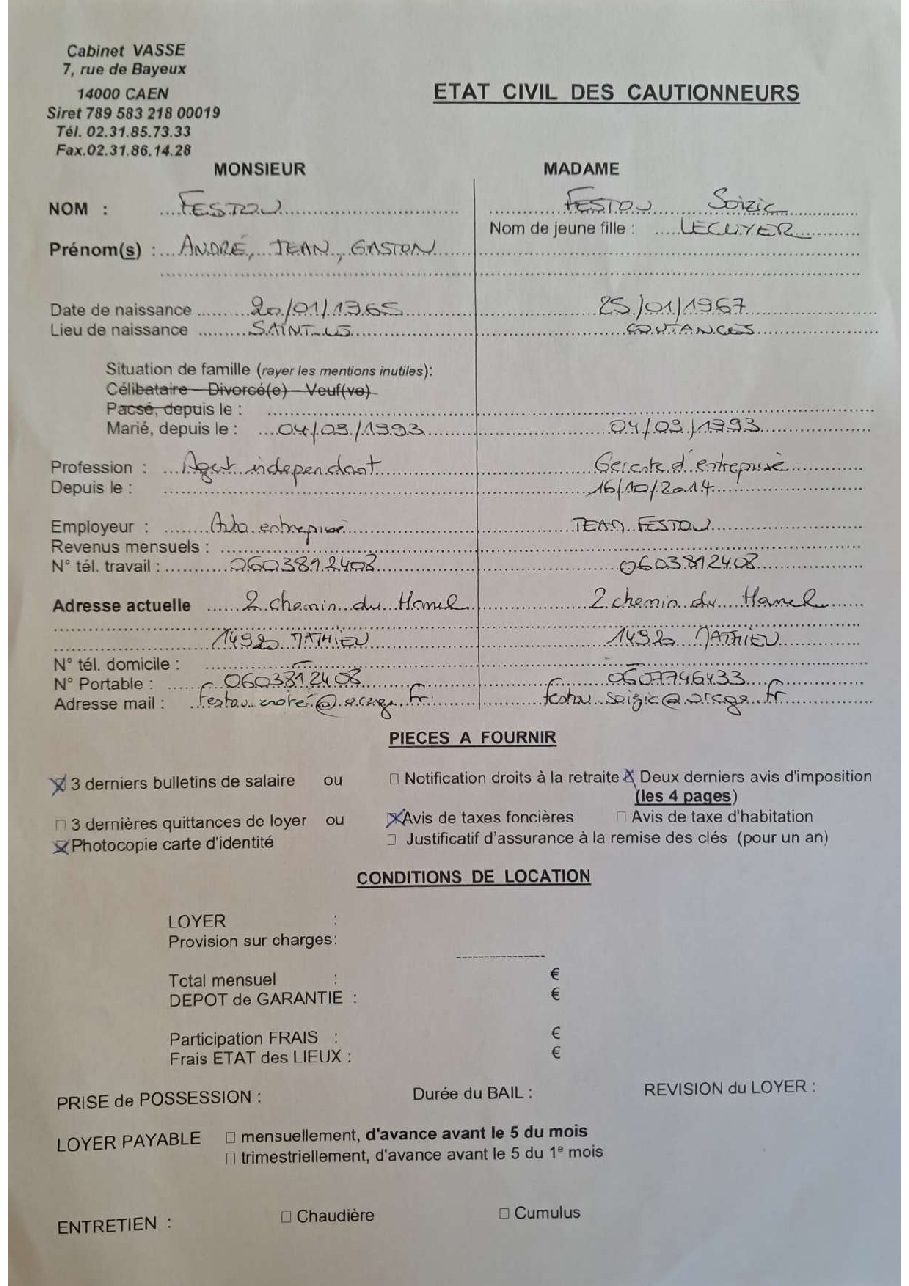 Cabinet VASSE
7, rue de Bayeux
14000 CAEN
Siret 789 583 218 00019
Tél. 02.31.85.73.33
Fax.02.31.86.14.28
ETAT CIVIL DES CAUTIONNEURS
MONSIEUR MADAME
NOM : FESTOU FESTOU Soizic
Nom de jeune fille : LECUYER
Prénom(s) : ANDRÉ, JEAN, GASTON
Date de naissance 20/01/1965 25/01/1967
Lieu de naissance SAINT-LO COUTANCES
Situation de famille (rayer les mentions inutiles):
Célibataire – Divorcé(e) – Veuf(ve)
Pacsé, depuis le :
Marié, depuis le : 04/09/1993 04/09/1993
Profession : Agent independant Gerante d'entreprise
Depuis le : 16/10/2014
Employeur : Auto entreprise TEAM FESTOU
Revenus mensuels :
N° tél. travail : 0603812408 0603812408
Adresse actuelle 2 chemin du Hamel 2 chemin du Hamel
14920 MATHIEU 14920 MATHIEU
N° tél. domicile :
N° Portable : 0603812408 0607746433
Adresse mail :
PIECES A FOURNIR
3 derniers bulletins de salaire ou Notification droits à la retraite Deux derniers avis d'imposition
(les 4 pages)
3 dernières quittances de loyer ou Avis de taxes foncières Avis de taxe d'habitation
Photocopie carte d'identité Justificatif d'assurance à la remise des clés (pour un an)
CONDITIONS DE LOCATION
LOYER :
Provision sur charges:
Total mensuel : €
DEPOT de GARANTIE : €
Participation FRAIS : €
Frais ETAT des LIEUX : €
PRISE de POSSESSION : Durée du BAIL : REVISION du LOYER :
LOYER PAYABLE mensuellement, d'avance avant le 5 du mois
trimestriellement, d'avance avant le 5 du 1e mois
ENTRETIEN : Chaudière Cumulus